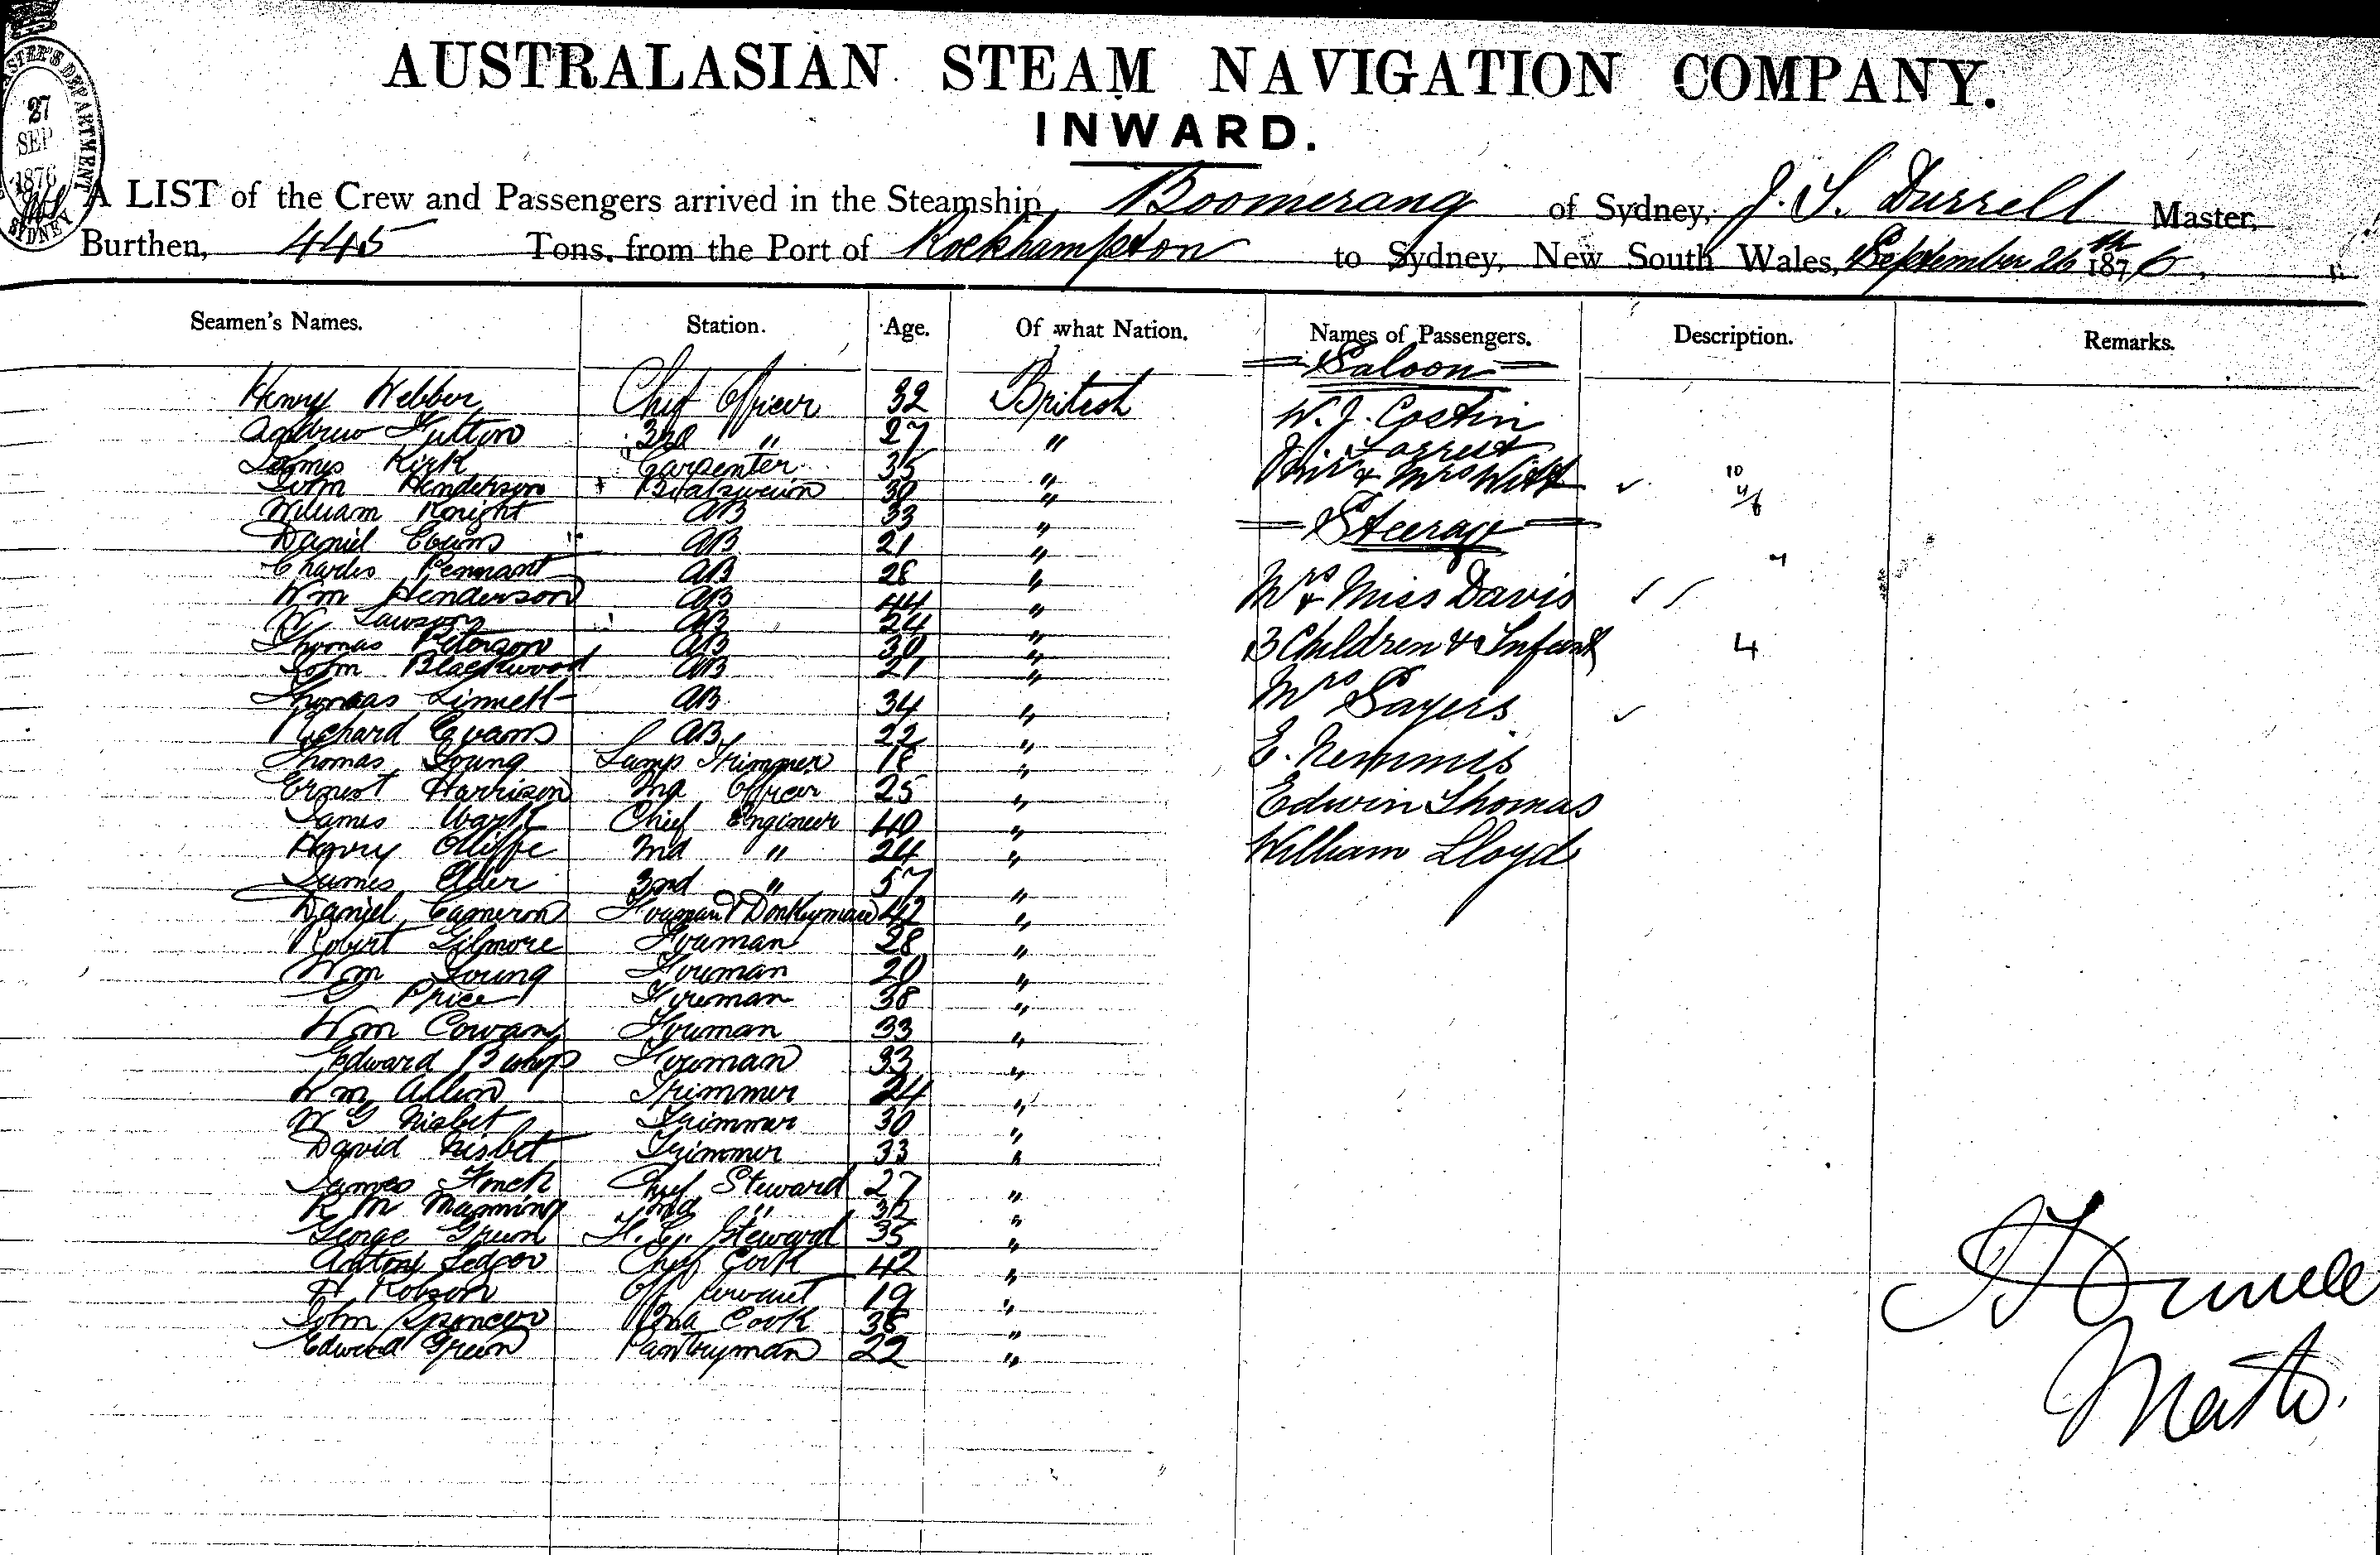 AUSTRALASIAN STEAM NAVIGATION COMPANY.
INWARD.
27
SEP
1876
SYDNEY
A LIST of the Crew and Passengers arrived in the Steamship Boomerang of Sydney, J. S. Durrell Master,
Burthen, 445 Tons, from the Port of Rockhampton to Sydney, New South Wales, September 26th 1876
Seamen's Names. Station. Age. Of what Nation. Names of Passengers. Description. Remarks.
Henry Webber Chief Officer 32 British
Andrew Fulton 3rd " 27 "
James Kirk Carpenter 35 "
John Henderson Boatswain 30 "
William Knight AB 33 "
Daniel Evans AB 21 "
Charles Pennant AB 28 "
Wm Henderson AB 44 "
Lawson AB 24 "
Thomas Peterson AB 30 "
John Blackwood AB 21 "
Thomas Linnett AB 34 "
Richard Evans AB 22 "
Thomas Young Lamp Trimmer 18 "
Ernest Harrison 2nd Officer 25 "
James Wark Chief Engineer 40 "
Henry Olliffe 2nd " 24 "
James Alder 3rd " 57 "
Daniel Cameron Fireman & Donkeyman 42 "
Robert Gilmore Fireman 28 "
Wm Young Fireman 20 "
G Price Fireman 38 "
Wm Cowan Fireman 33 "
Edward Bishop Fireman 33 "
Wm Allen Trimmer 24 "
W G Nisbet Trimmer 30 "
David Nisbet Trimmer 33 "
James Finch Chief Steward 27 "
R M Manning 2nd "
George Steward 35 "
Chief Cook 42 "
H Robson Servant 19 "
John Spencer 2nd Cook 38 "
Edward Green Pantryman 22 "
Saloon
W. J. Costin
Forrest
& Mrs Witt
Steerage
Mrs & Miss Davis
3 Children & Infant 4
Mrs Sayers
E. Nemmis
Edwin Thomas
William Lloyd